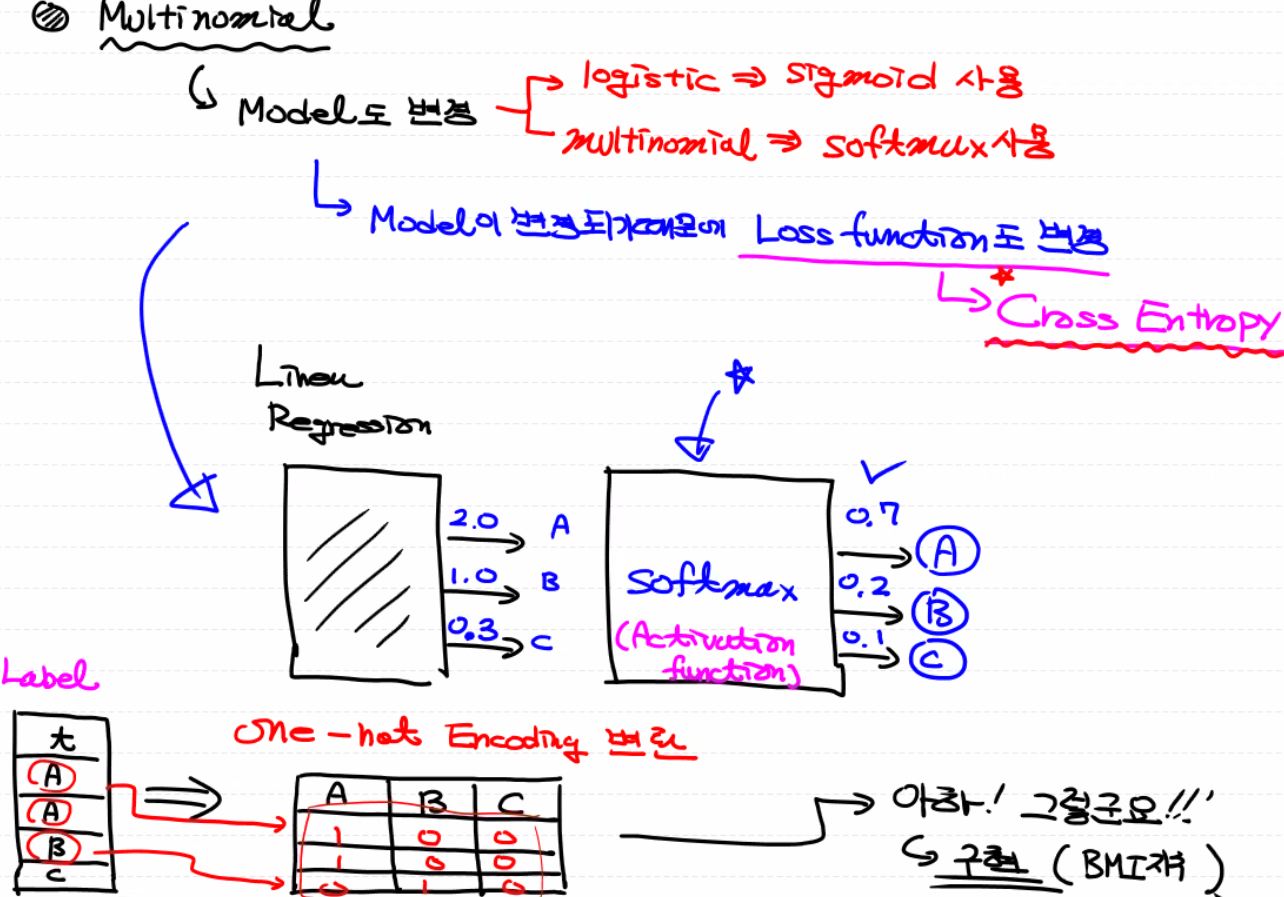 Multinomial
Model도 변경
logistic ⇒ sigmoid 사용
multinomial ⇒ softmax 사용
Model이 변경되기때문에 Loss function도 변경
Cross Entropy
Linear
Regression
2.0 A
1.0 B
0.3 C
softmax
(Activation
function)
0.7 A
0.2 B
0.1 C
Label
t
A
A
B
C
one-hot Encoding 변환
A B C
1 0 0
1 0 0
0 1 0
아하! 그렇구요!!!
구현 (BMI